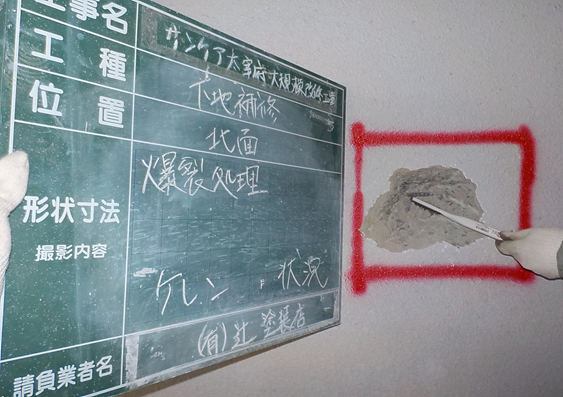 工事名
サンケア太宰府大規模改修工事
工種
下地補修
位置
北面
爆裂処理
形状寸法
撮影内容
ケレン 状況
(有)辻塗装店
請負業者名